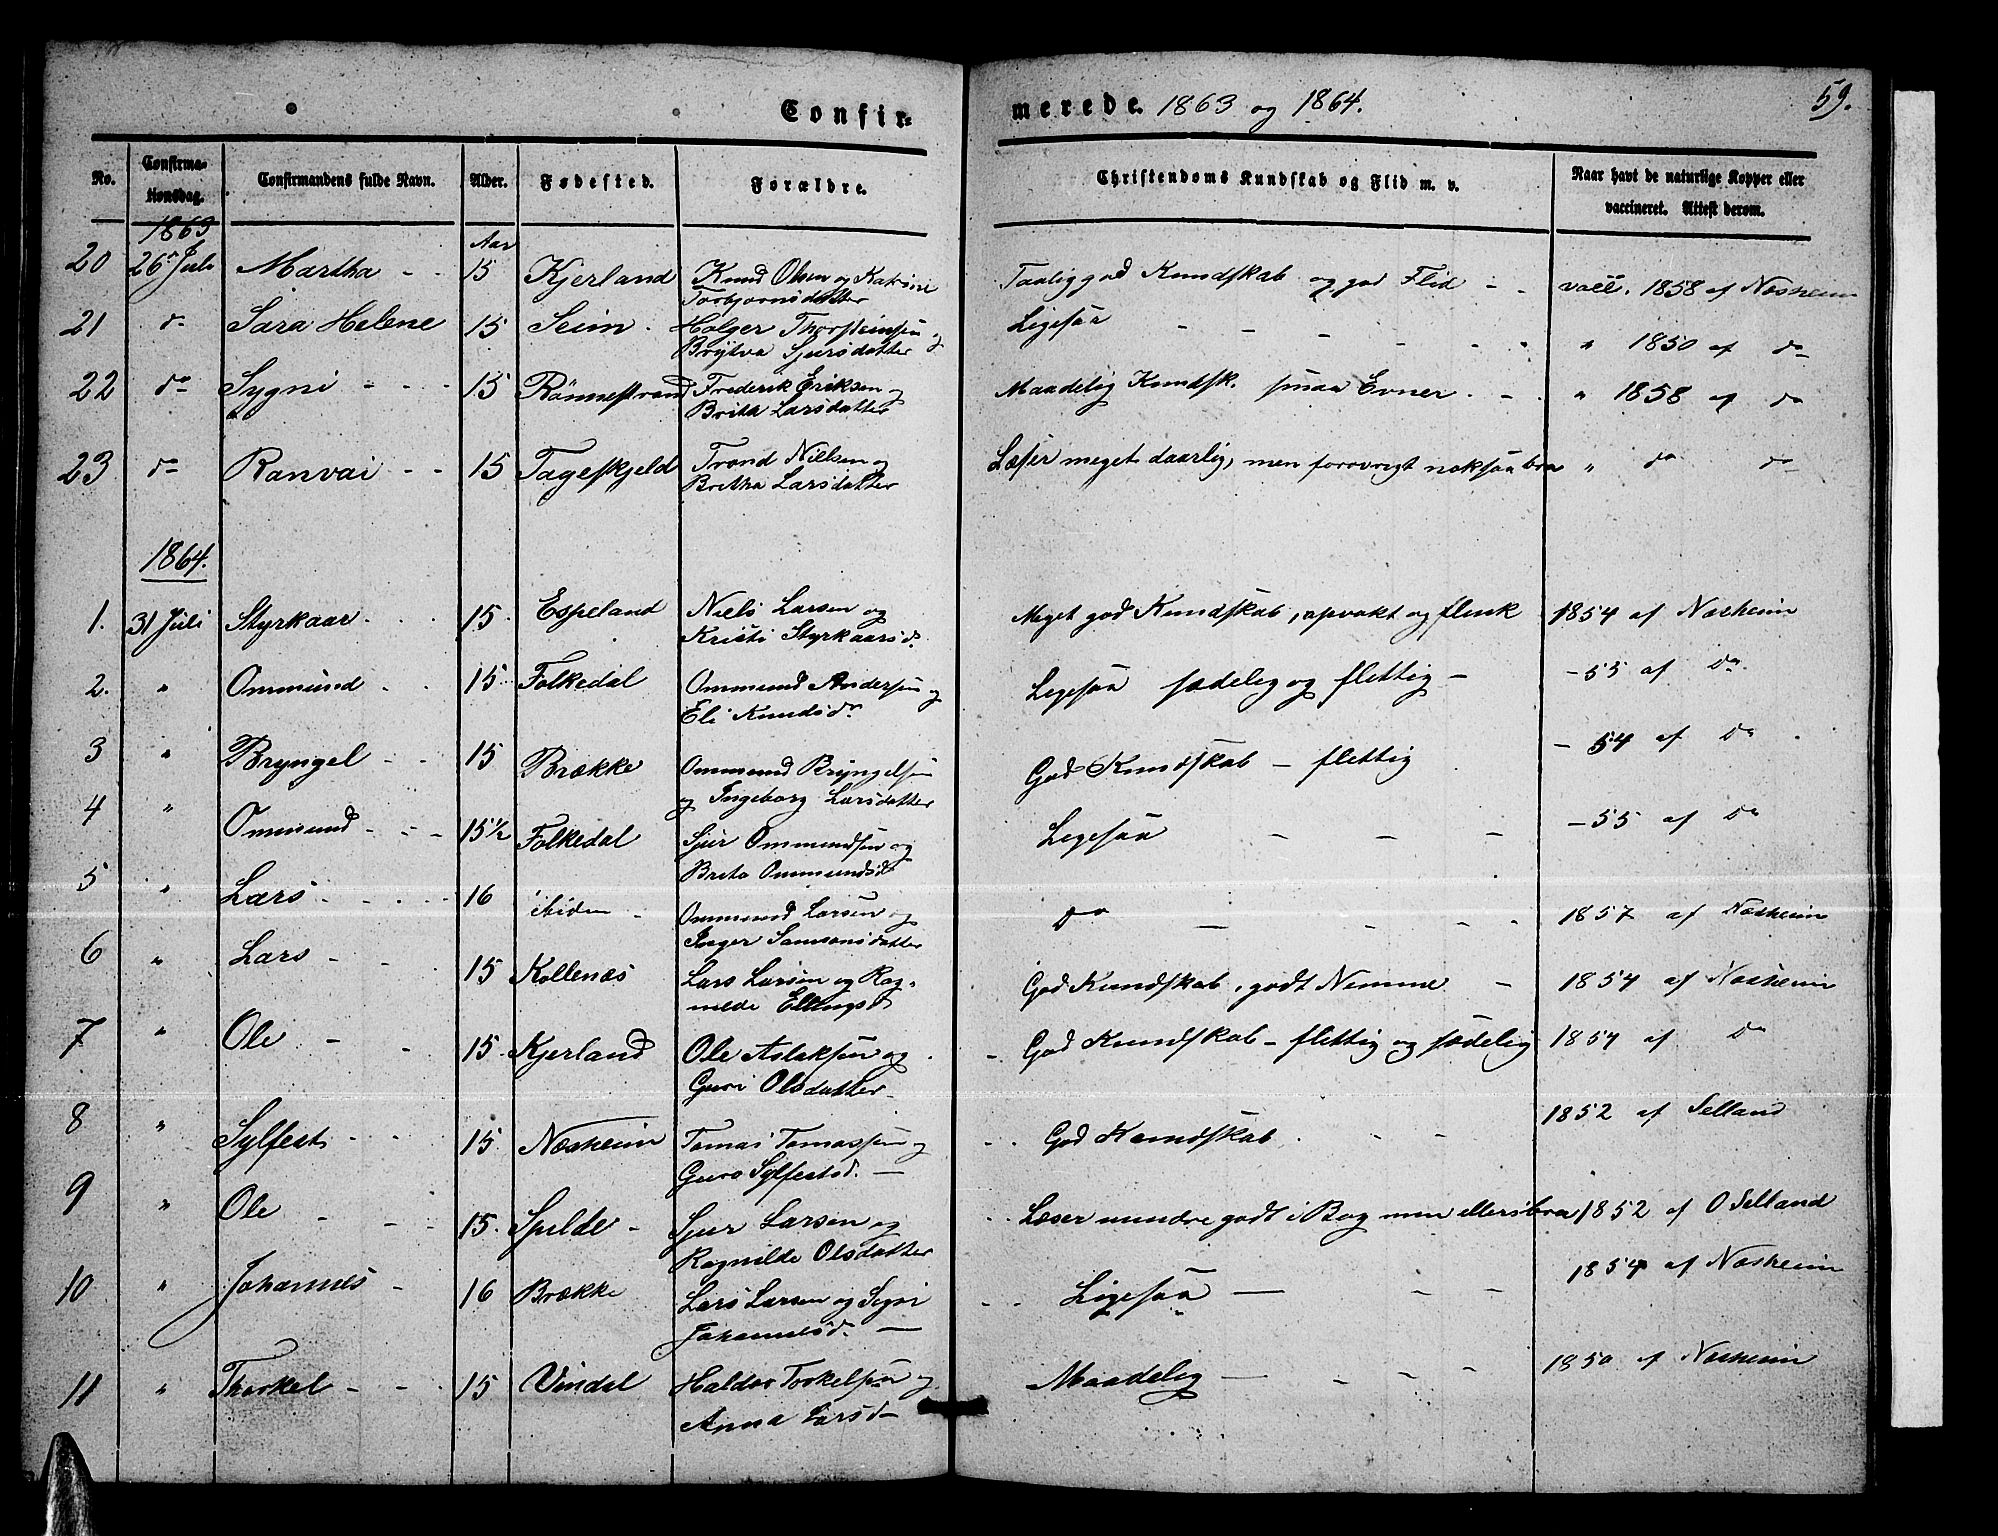 Confir-
merede. 1863 og 1864.
59.
No.
Confirma-
tionsdag.
Confirmandens fulde Navn.
Alder.
Fødested.
Forældre.
Christendoms Kundskab og Flid m. v.
Naar havt de naturlige Kopper eller
vaccineret. Attest derom.
1863
Aar
20 26 Juli Martha - - 15 Kjerland Knud Olsen og Katrine
Torbjornsdatter
Taalig god Kundskab og god Flid - - vacc. 1858 af Næsheim
21 do Sara Helene 15 Seim - Holger Thorsteinsen og
Brytva Sjursdatter
Ligesaa - - - - - - " 1850 af do
22 do Sygni - - - 15 Rønnestrand Frederik Eriksen og
Brita Larsdatter
Maadelig Kundsk. smaa Evner - - " 1858 af do
23 do Ranvai - - 15 Tageskjeld Trond Nielsen og
Britha Larsdatter
Læser meget daarlig, men forøvrigt noksaa bra " do do
1864.
1. 31 Juli Styrkaar - - 15. Espeland Niels Larsen og
Kristi Styrkaarsd.
Meget god Kundskab, opvakt og flink 1854 af Næsheim
2. " Ommund - - 15 Folkedal Ommund Andersen og
Eli Knudsdr
Ligesaa sædelig og flittig - - 55 af do
3 " Bryngel - - 15 Brække Ommund Bryngelsen
og Ingeborg Larsdatter
God Kundskab - flittig - 54 af do
4 " Ommund - - - 15 1/2 Folkedal Sjur Ommundsen og
Brita Ommundsd
Ligesaa - - - - 55 af do
5 " Lars - - - - 16 ibidem - Ommund Larsen og
Inger Samsonsdatter
do - - - - 1857 af Næsheim
6 " Lars - - 15 Kollenæs Lars Larsen og Rag-
nilde Ellingsd
God Kundskab, godt Nemme - 1854 af Næsheim
7 " Ole - - 15. Kjerland Ole Aslaksen og
Guri Olsdatter
God Kundskab - flittig og sædelig 1854 af do
8 " Sylfest - - - 15 Næsheim Tomas Tomassen og
Guro Sylfestsd. -
God Kundskab. - - 1852 af Selland
9 " Ole - - - 15. Spilde - Sjur Larsen og
Ragnilde Olsdatter
Læser mindre godt i Bog men ellers bra 1852 af O Selland
10 " Johannes - 16 Brække Lars Larsen og Sigri
Johannesd. -
Ligesaa - - - 1854 af Næsheim
11 " Thorkel - - - 15 Vindal Haldor Torkelsen og
Anna Larsd
Maadelig - - - - 1850 af Næsheim